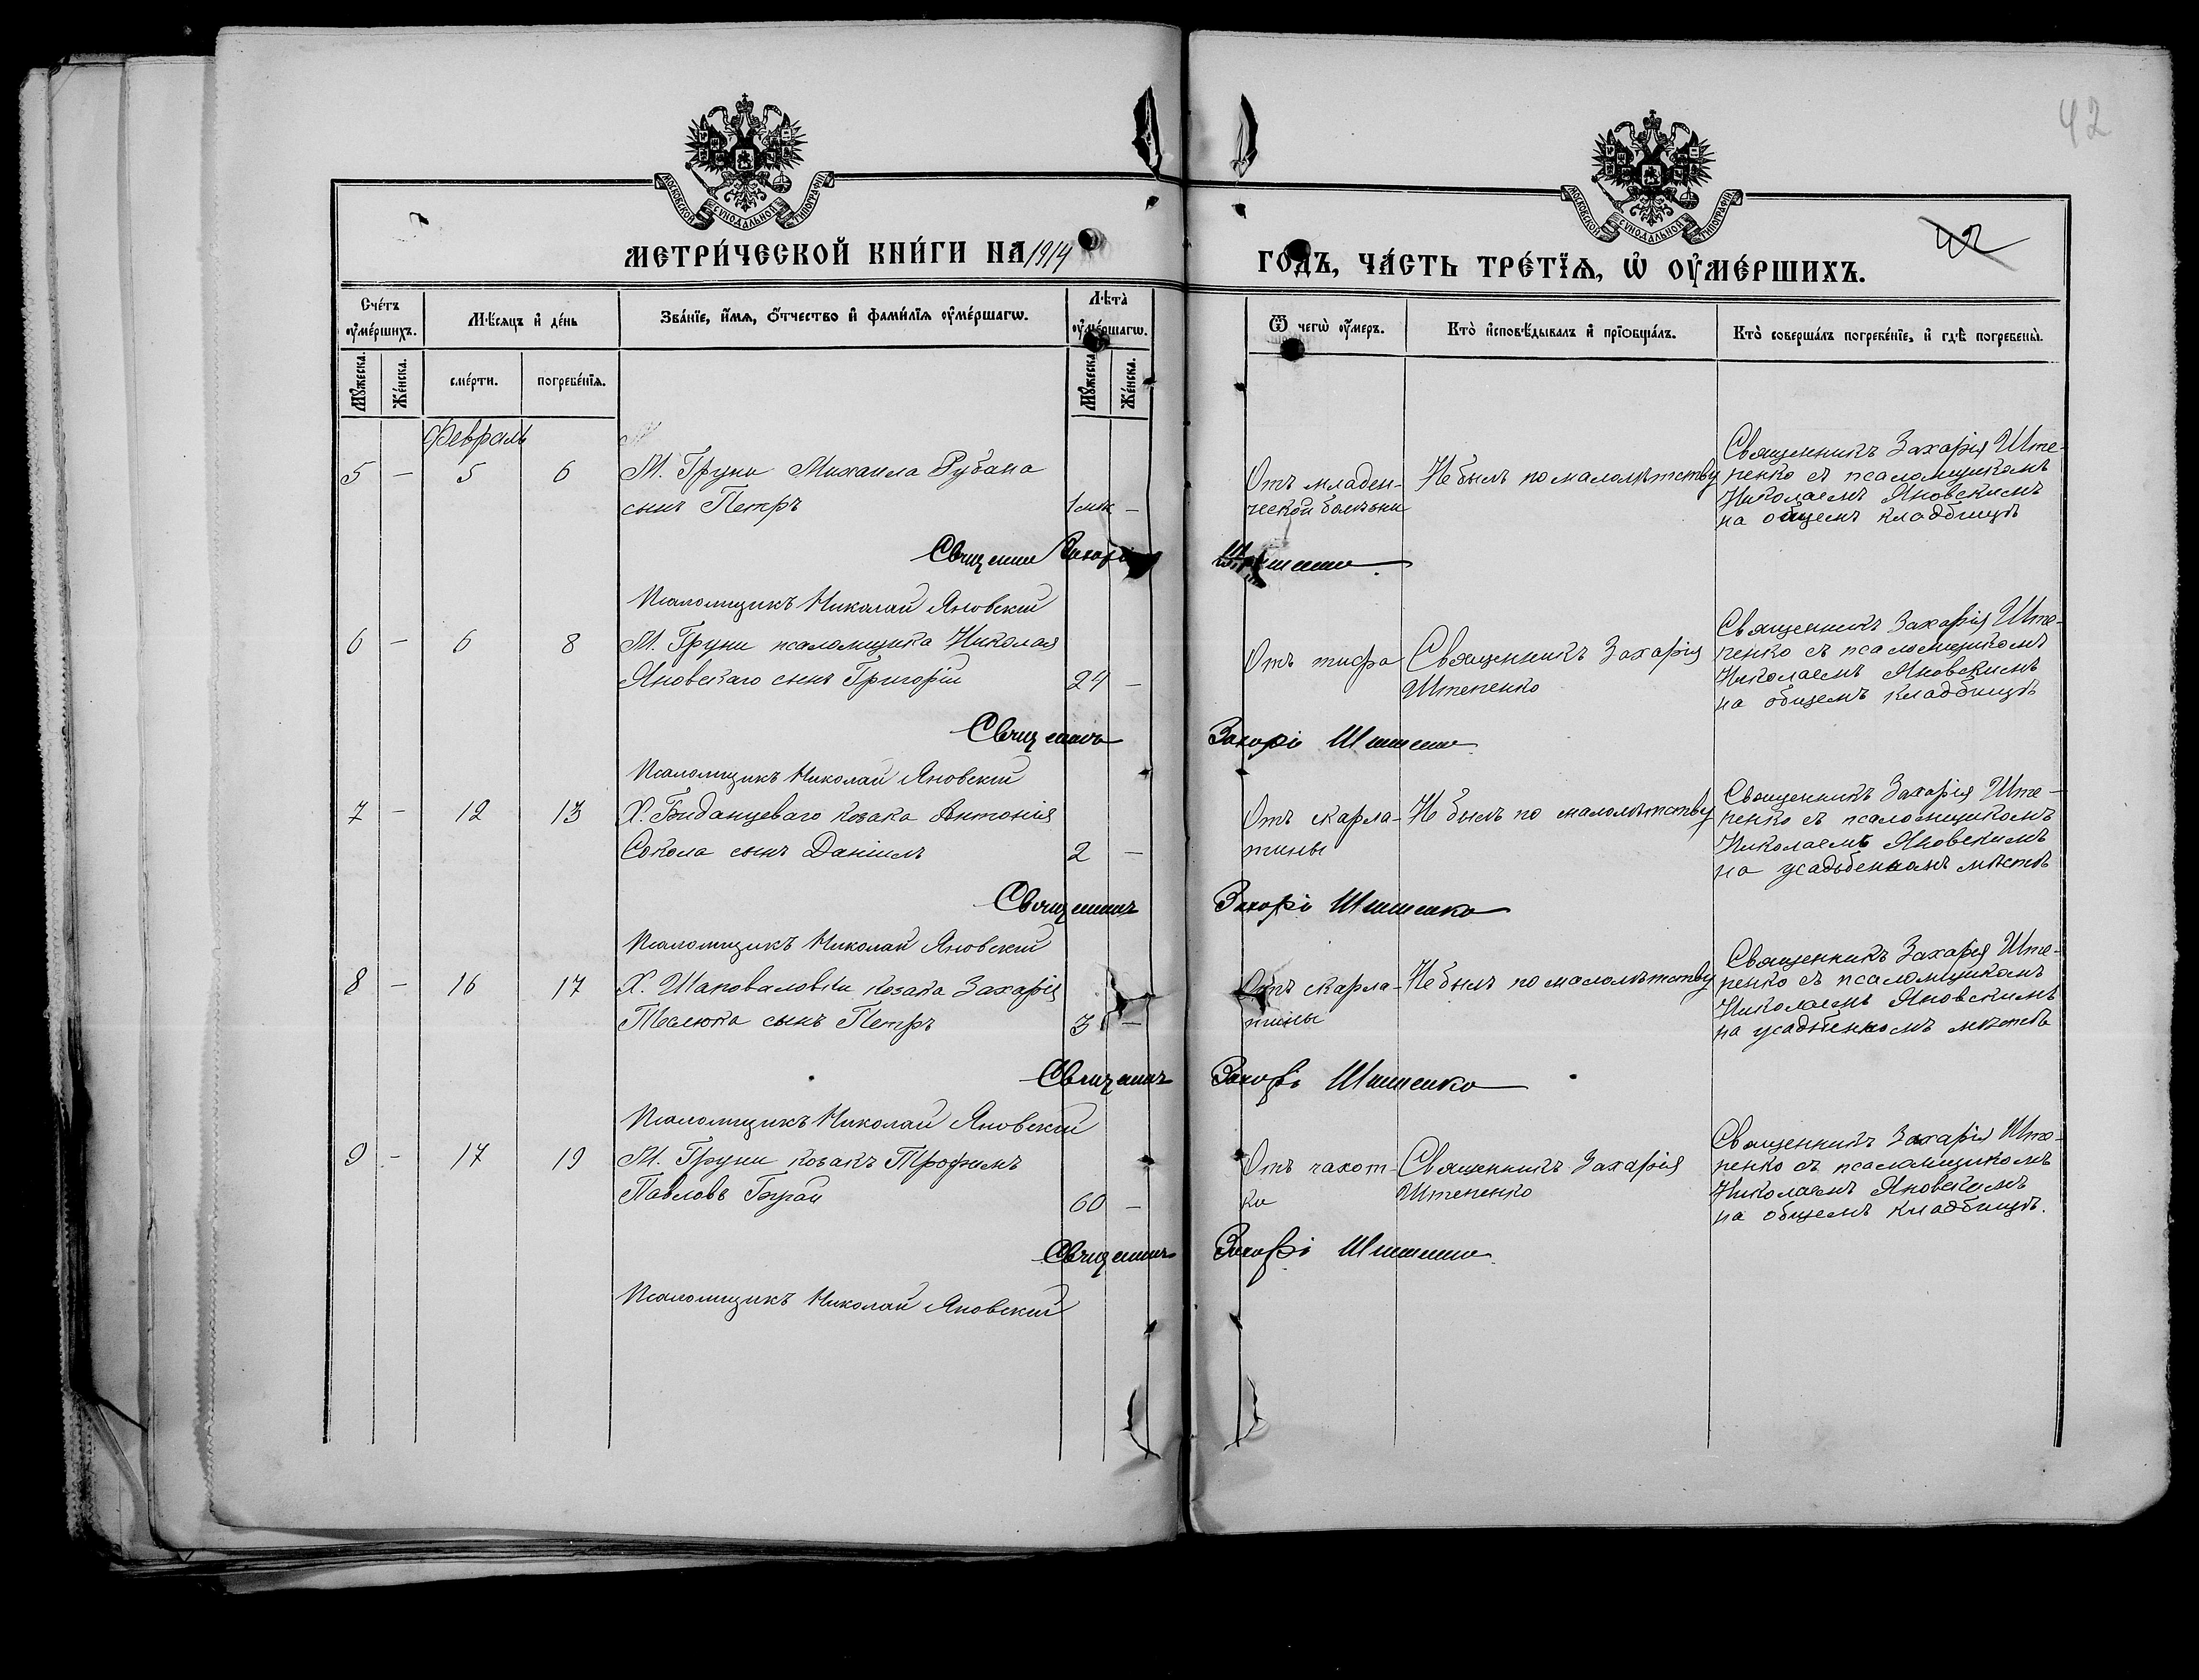 42
МОСКОВСКОЙ СѴНОДАЛЬНОЙ ТИПОГРАФІИ
МОСКОВСКОЙ СѴНОДАЛЬНОЙ ТИПОГРАФІИ
42
МЕТРИ́ЧЕСКОЙ КНИ́ГИ НА 1914
ГОДЪ, ЧА́СТЬ ТРЕ́ТІѦ, Ѽ ОУ҆МЕ́РШИХЪ.
Сче́тъ оу҆ме́ршихъ.
Мѣ́сяцъ и҆ де́нь
Зва́нїе, и҆́мѧ, ѻ҆́тчество и҆ фами́лїѧ оу҆ме́ршагѡ.
Лѣта̀ оу҆ме́ршагѡ.
Ѿ чегѡ̀ оу҆́меръ.
Кто̀ и҆сповѣ́дывалъ и҆ прїѡбща́лъ.
Кто̀ соверша́лъ погребе́нїе, и҆ гдѣ̀ погребены̀.
Мꙋ́жеска.
Же́нска.
сме́рти.
погребе́нїѧ.
Мꙋ́жеска.
Же́нска.
Февраль
5 – 5 6 М. Груни Михаила Рубана
сынъ Петръ 1 мѣс –
Отъ младен-
ческой болѣзни
Не былъ по малолѣтству
Священникъ Захарія Ште-
пенко съ псаломщикомъ
Николаемъ Яновскимъ
на общемъ кладбищѣ
Священникъ Захарія Штепенко
Псаломщикъ Николай Яновскій
6 – 6 8 М. Груни псаломщика Николая
Яновскаго сынъ Григорій 24 –
Отъ тифа
Священникъ Захарія
Штепенко
Священникъ Захарія Ште-
пенко съ псаломщикомъ
Николаемъ Яновскимъ
на общемъ кладбищѣ
Священникъ Захарія Штепенко
Псаломщикъ Николай Яновскій
7 – 12 13 Х. Биданцеваго козака Антонія
Сокола сынъ Даніилъ 2 –
Отъ скарла-
тины
Не былъ по малолѣтству
Священникъ Захарія Ште-
пенко съ псаломщикомъ
Николаемъ Яновскимъ
на усадьбенномъ мѣстѣ
Священникъ Захарія Штепенко
Псаломщикъ Николай Яновскій
8 – 16 17 Х. Шаповаловки козака Захарія
Телюпа сынъ Петръ 3 –
Отъ скарла-
тины
Не былъ по малолѣтству
Священникъ Захарія Ште-
пенко съ псаломщикомъ
Николаемъ Яновскимъ
на усадьбенномъ мѣстѣ
Священникъ Захарія Штепенко
Псаломщикъ Николай Яновскій
9 – 17 19 М. Груни козакъ Трофимъ
Павловъ 60 –
Отъ чахот-
ки
Священникъ Захарія
Штепенко
Священникъ Захарія Ште-
пенко съ псаломщикомъ
Николаемъ Яновскимъ
на общемъ кладбищѣ.
Священникъ Захарія Штепенко
Псаломщикъ Николай Яновскій